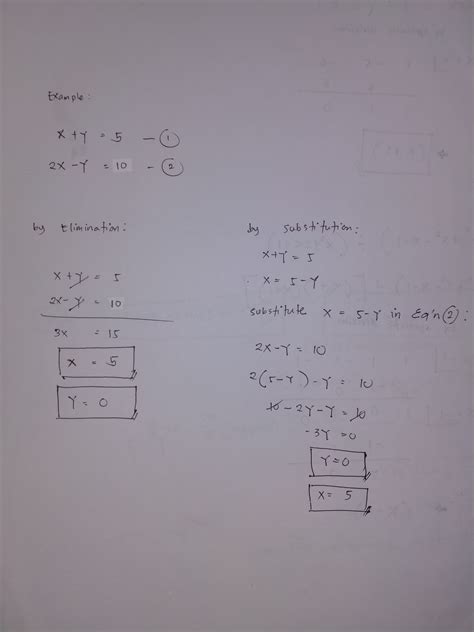 Example:
x + y = 5 — ①
2x - y = 10 — ②
by Elimination:
x + y = 5
2x - y = 10
3x = 15
x = 5
y = 0
by substitution:
x + y = 5
x = 5 - y
substitute x = 5 - y in Eq'n ②:
2x - y = 10
2(5 - y) - y = 10
10 - 2y - y = 10
-3y = 0
y = 0
x = 5